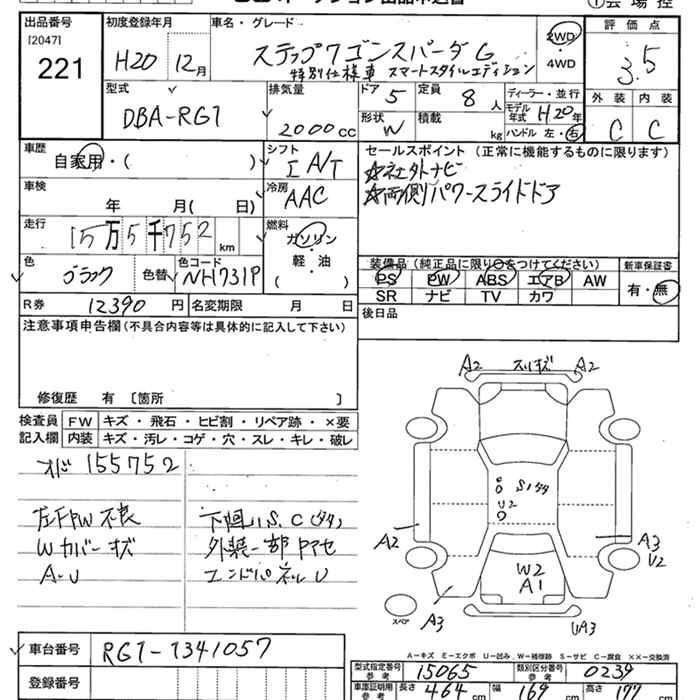 ① 会 場 控
出品番号
[2047]
221
初度登録年月
H20 12月
車名・グレード
ステップワゴンスパーダ G
特別仕様車 スマートスタイルエディション
2WD
4WD
評価点
3.5
外装 内装
C C
型式
DBA-RG1
排気量
2000cc
ドア 5
定員 8人
ディーラー・並行
モデル年式 H20年
形状 W
積載 kg
ハンドル 左・右
車歴
自家用・( )
シフト
I A/T
セールスポイント (正常に機能するものに限ります)
☆社外ナビ
☆両側パワースライドドア
車検
年 月( 日)
冷房
AAC
走行
15万5千752km
燃料
ガソリン
軽・油
( ・ )
色
ブラック
色替
色コード
NH731P
装備品 (純正品に限り○をつけてください)
PS PW ABS エアB AW
SR ナビ TV カワ
新車保証書
有・無
R券 12390円
名変期限 月 日
後日品
注意事項申告欄 (不具合内容等は具体的に記入して下さい)
修復歴 有 〔箇所 〕
検査員記入欄
FW キズ・飛石・ヒビ割・リペア跡・×要
内装 キズ・汚レ・コゲ・穴・スレ・キレ・破レ
オド 155752
左F PW 不良
Wカバーキズ
A-U
下回りS.C(タタ)
外装一部ヤケ
エンドパネルU
A2 スリキズ A2
Sノタタ
U2
A2
A3
U2
W2
A1
スペア
A3
UA3
A-キズ E-エクボ U-凹み W-補修跡 S-サビ C-腐食 ××-交換済
車台番号 RG1-1341057
登録番号
型式指定番号 参考 15065
類別区分番号 参考 0239
車庫証明用 参考 長さ 464cm 幅 169cm 高さ 177cm